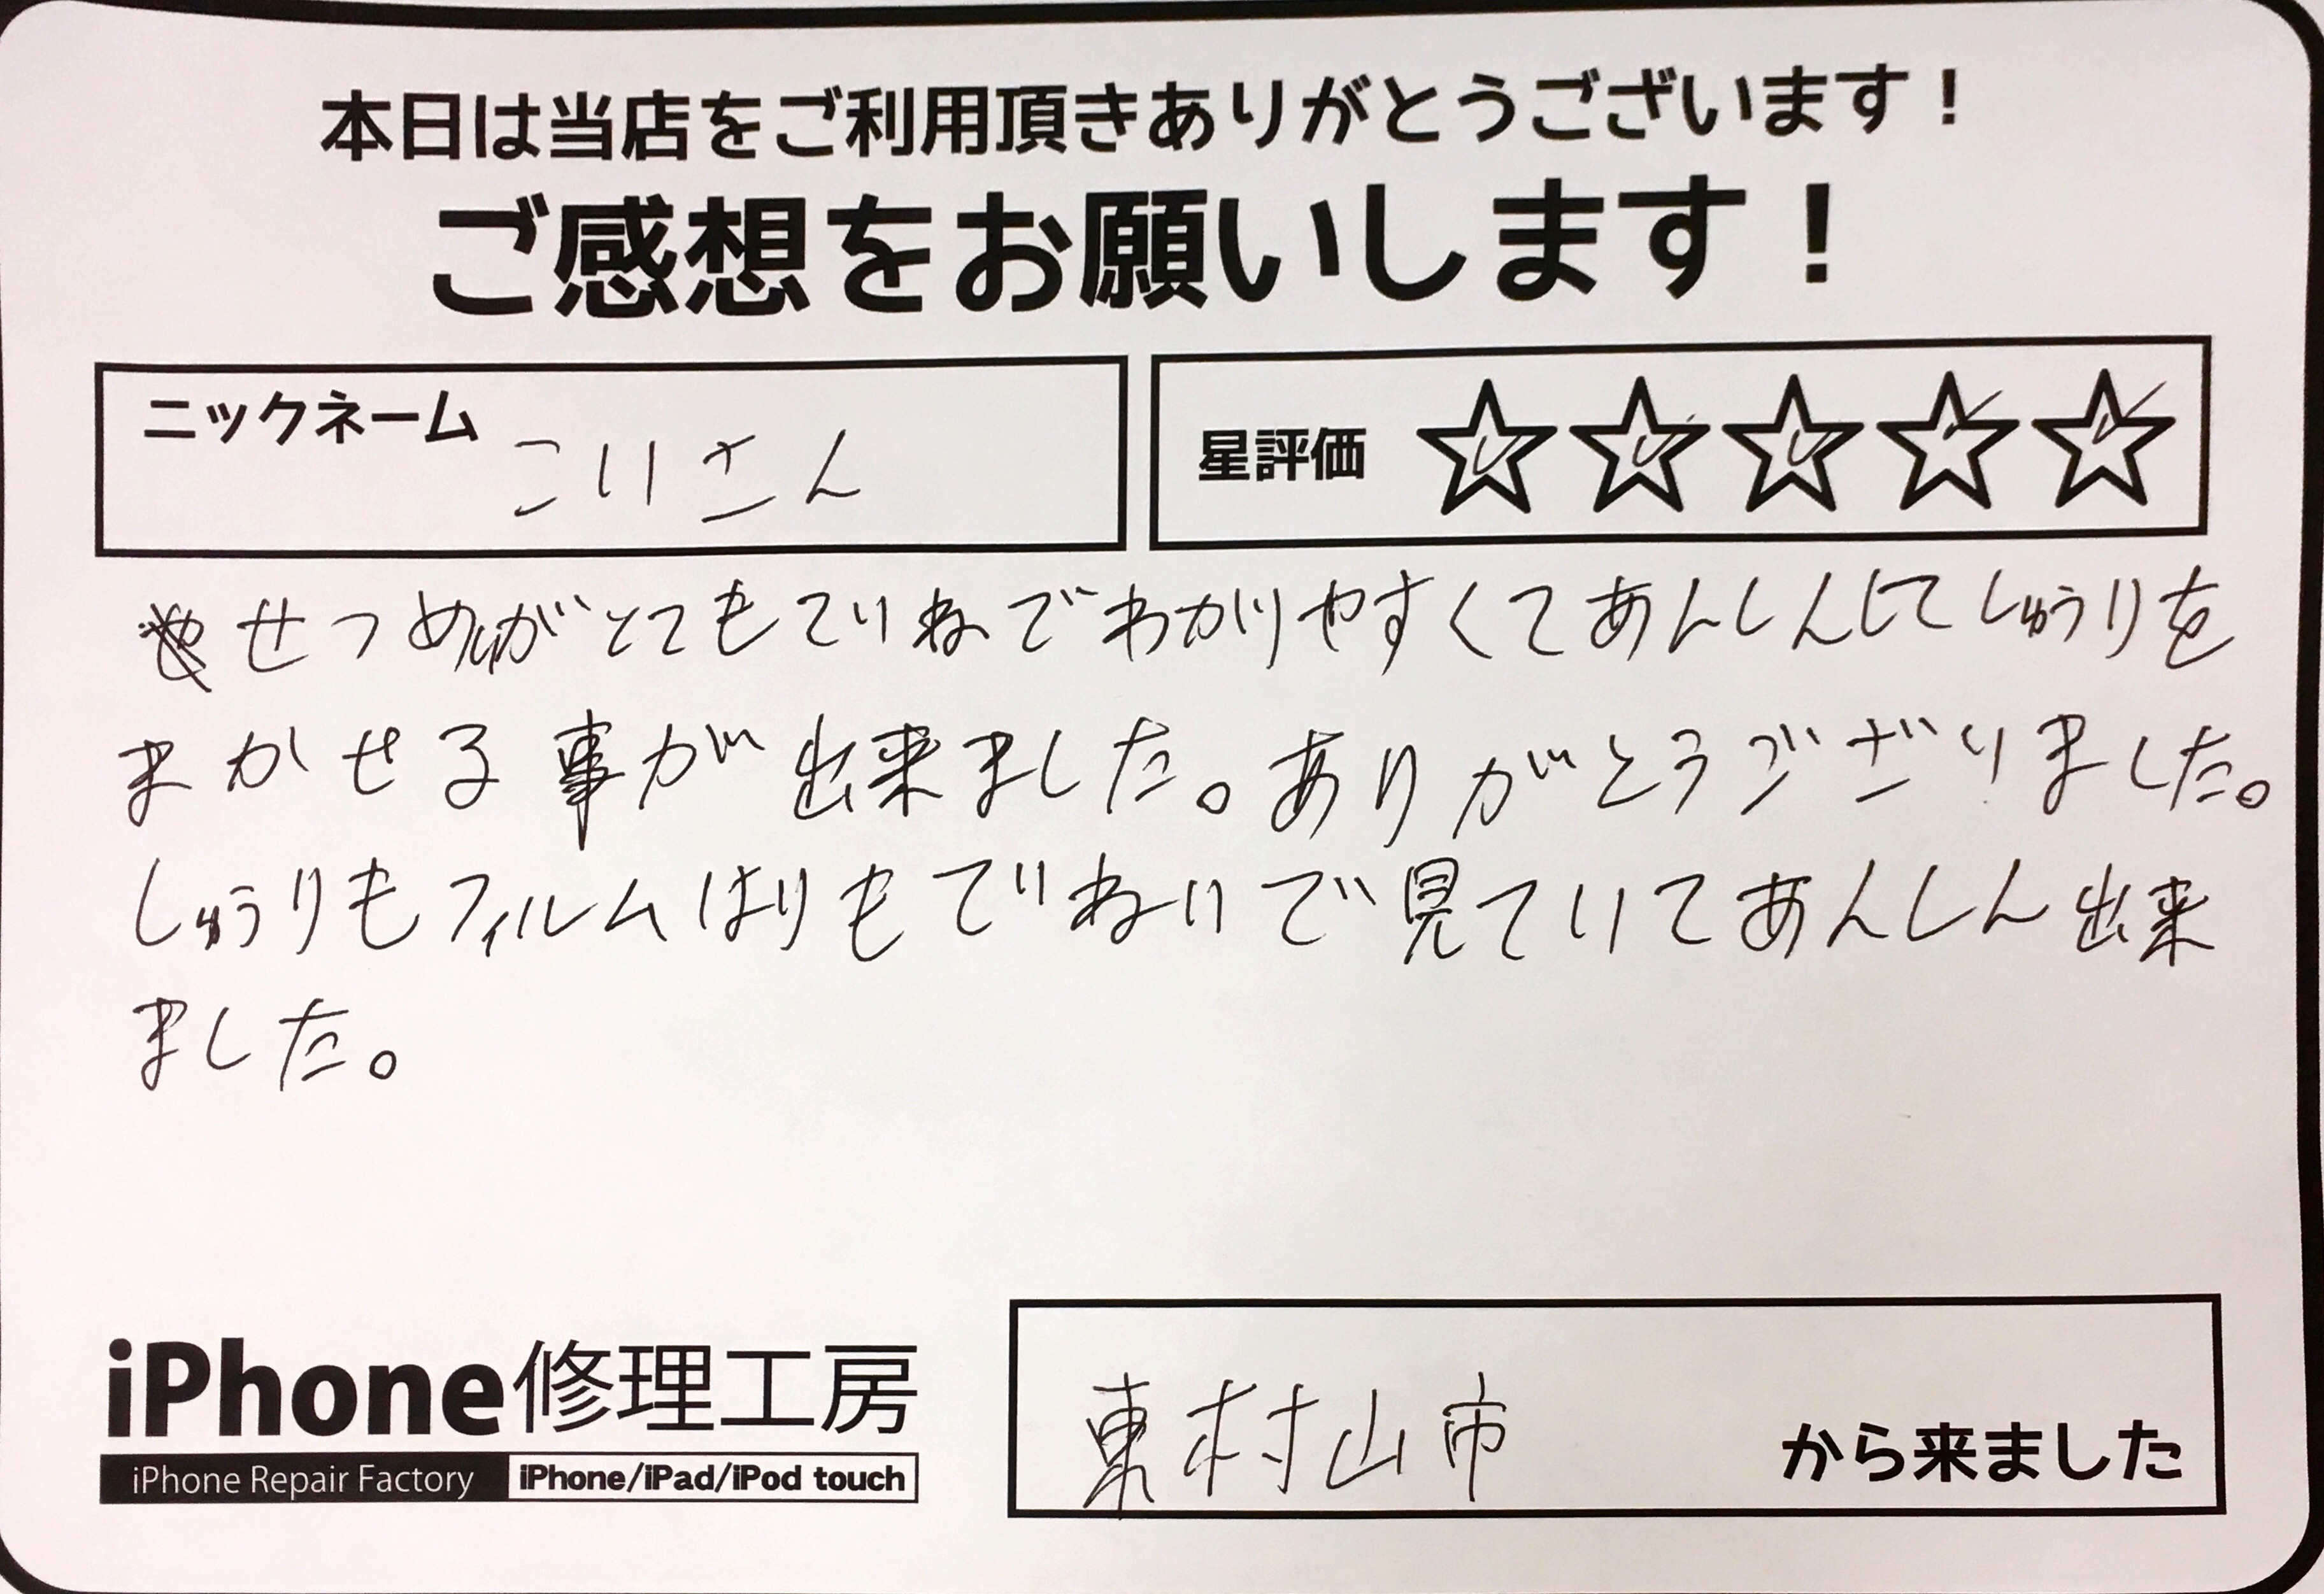 本日は当店をご利用頂きありがとうございます！
ご感想をお願いします！
ニックネーム こいさん
星評価 ☆☆☆☆☆
せつめいがとてもていねでわかりやすくてあんしんしてしゅうりを
まかせる事が出来ました。ありがとうございました。
しゅうりもフィルムはりもていねいで見ていてあんしん出来
ました。
iPhone修理工房
iPhone Repair Factory iPhone/iPad/iPod touch
東村山市 から来ました